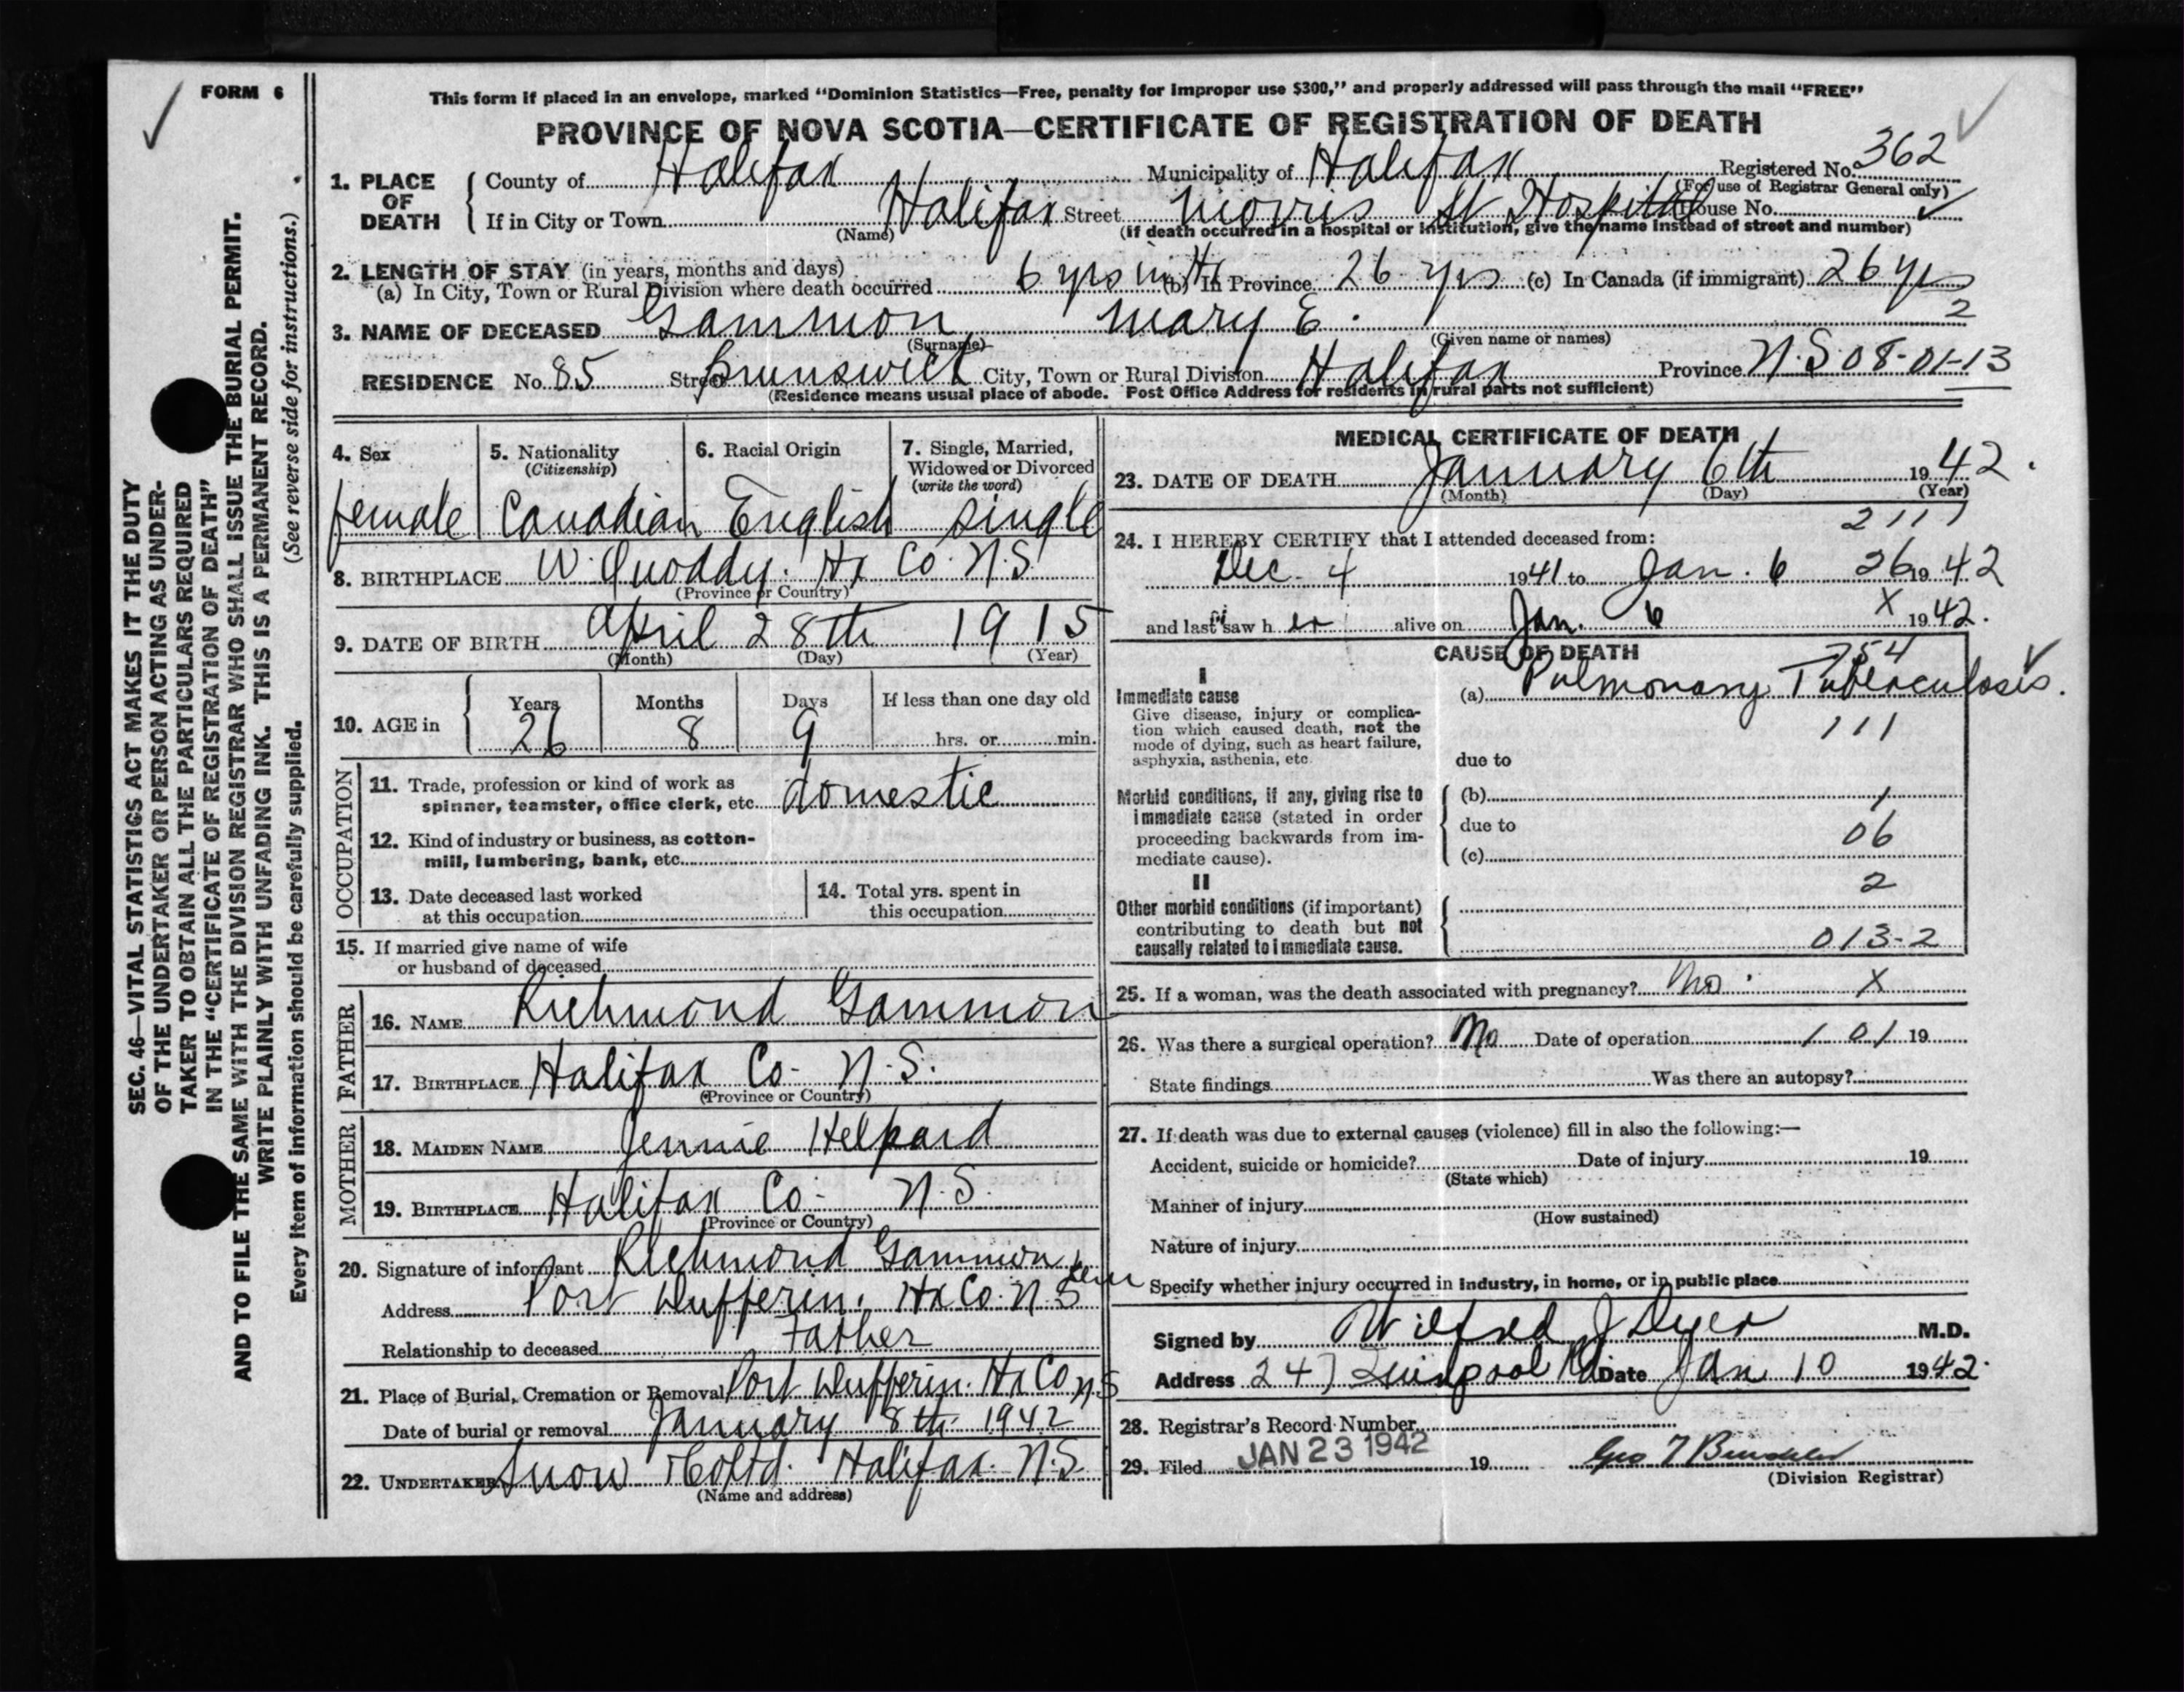 FORM 6
This form if placed in an envelope, marked "Dominion Statistics—Free, penalty for improper use $300," and properly addressed will pass through the mail "FREE"
PROVINCE OF NOVA SCOTIA—CERTIFICATE OF REGISTRATION OF DEATH
1. PLACE OF DEATH County of Halifax Municipality of Halifax Registered No. 362
(For use of Registrar General only)
If in City or Town Halifax Street Morris St Hospital House No.
(Name) (If death occurred in a hospital or institution, give the name instead of street and number)
2. LENGTH OF STAY (in years, months and days)
(a) In City, Town or Rural Division where death occurred 6 yrs in Hx (b) In Province 26 yrs (c) In Canada (if immigrant) 26 yrs
2
3. NAME OF DECEASED Gammon, Mary E.
(Surname) (Given name or names)
RESIDENCE No. 85 Street Brunswick City, Town or Rural Division Halifax Province N.S 08-01-13
(Residence means usual place of abode. Post Office Address for residents in rural parts not sufficient)
4. Sex 5. Nationality (Citizenship) 6. Racial Origin 7. Single, Married, Widowed or Divorced (write the word)
female Canadian English single
8. BIRTHPLACE W. Quoddy. Hx Co. N.S.
(Province or Country)
9. DATE OF BIRTH April 28th 1915
(Month) (Day) (Year)
10. AGE in Years Months Days If less than one day old
26 8 9 hrs. or min.
OCCUPATION
11. Trade, profession or kind of work as
spinner, teamster, office clerk, etc. domestic
12. Kind of industry or business, as cotton-
mill, lumbering, bank, etc.
13. Date deceased last worked
at this occupation
14. Total yrs. spent in
this occupation
15. If married give name of wife
or husband of deceased
FATHER
16. NAME Richmond Gammon
17. BIRTHPLACE Halifax Co. N.S.
(Province or Country)
MOTHER
18. MAIDEN NAME Jennie Helpard
19. BIRTHPLACE Halifax Co. N.S.
(Province or Country)
20. Signature of informant Richmond Gammon
Address Port Dufferin, Hx Co. N.S
Relationship to deceased Father
21. Place of Burial, Cremation or Removal Port Dufferin. Hx Co N.S
Date of burial or removal January 8th 1942
22. UNDERTAKER Snow & Co Ltd. Halifax. N.S
(Name and address)
MEDICAL CERTIFICATE OF DEATH
23. DATE OF DEATH January 6th 1942.
(Month) (Day) (Year)
2111
24. I HEREBY CERTIFY that I attended deceased from:
Dec. 4 1941 to Jan. 6 26 1942
and last saw her alive on Jan. 6 X 1942.
CAUSE OF DEATH
754
I
Immediate cause
Give disease, injury or complica-
tion which caused death, not the
mode of dying, such as heart failure,
asphyxia, asthenia, etc
(a) Pulmonary Tuberculosis.
111
due to
Morbid conditions, if any, giving rise to
immediate cause (stated in order
proceeding backwards from im-
mediate cause).
(b) 1
due to 06
(c)
II 2
Other morbid conditions (if important)
contributing to death but not
causally related to immediate cause.
013-2
25. If a woman, was the death associated with pregnancy? No. X
26. Was there a surgical operation? No Date of operation 1 01 19
State findings Was there an autopsy?
27. If death was due to external causes (violence) fill in also the following:—
Accident, suicide or homicide? Date of injury 19
(State which)
Manner of injury
(How sustained)
Nature of injury
Specify whether injury occurred in industry, in home, or in public place
Signed by Wilfred J Dyer M.D.
Address 247 Quinpool Rd Date Jan 10 1942.
28. Registrar's Record Number
29. Filed JAN 23 1942 19
(Division Registrar)
SEC. 46—VITAL STATISTICS ACT MAKES IT THE DUTY
OF THE UNDERTAKER OR PERSON ACTING AS UNDER-
TAKER TO OBTAIN ALL THE PARTICULARS REQUIRED
IN THE "CERTIFICATE OF REGISTRATION OF DEATH"
AND TO FILE THE SAME WITH THE DIVISION REGISTRAR WHO SHALL ISSUE THE BURIAL PERMIT.
WRITE PLAINLY WITH UNFADING INK. THIS IS A PERMANENT RECORD.
Every item of information should be carefully supplied. (See reverse side for instructions.)